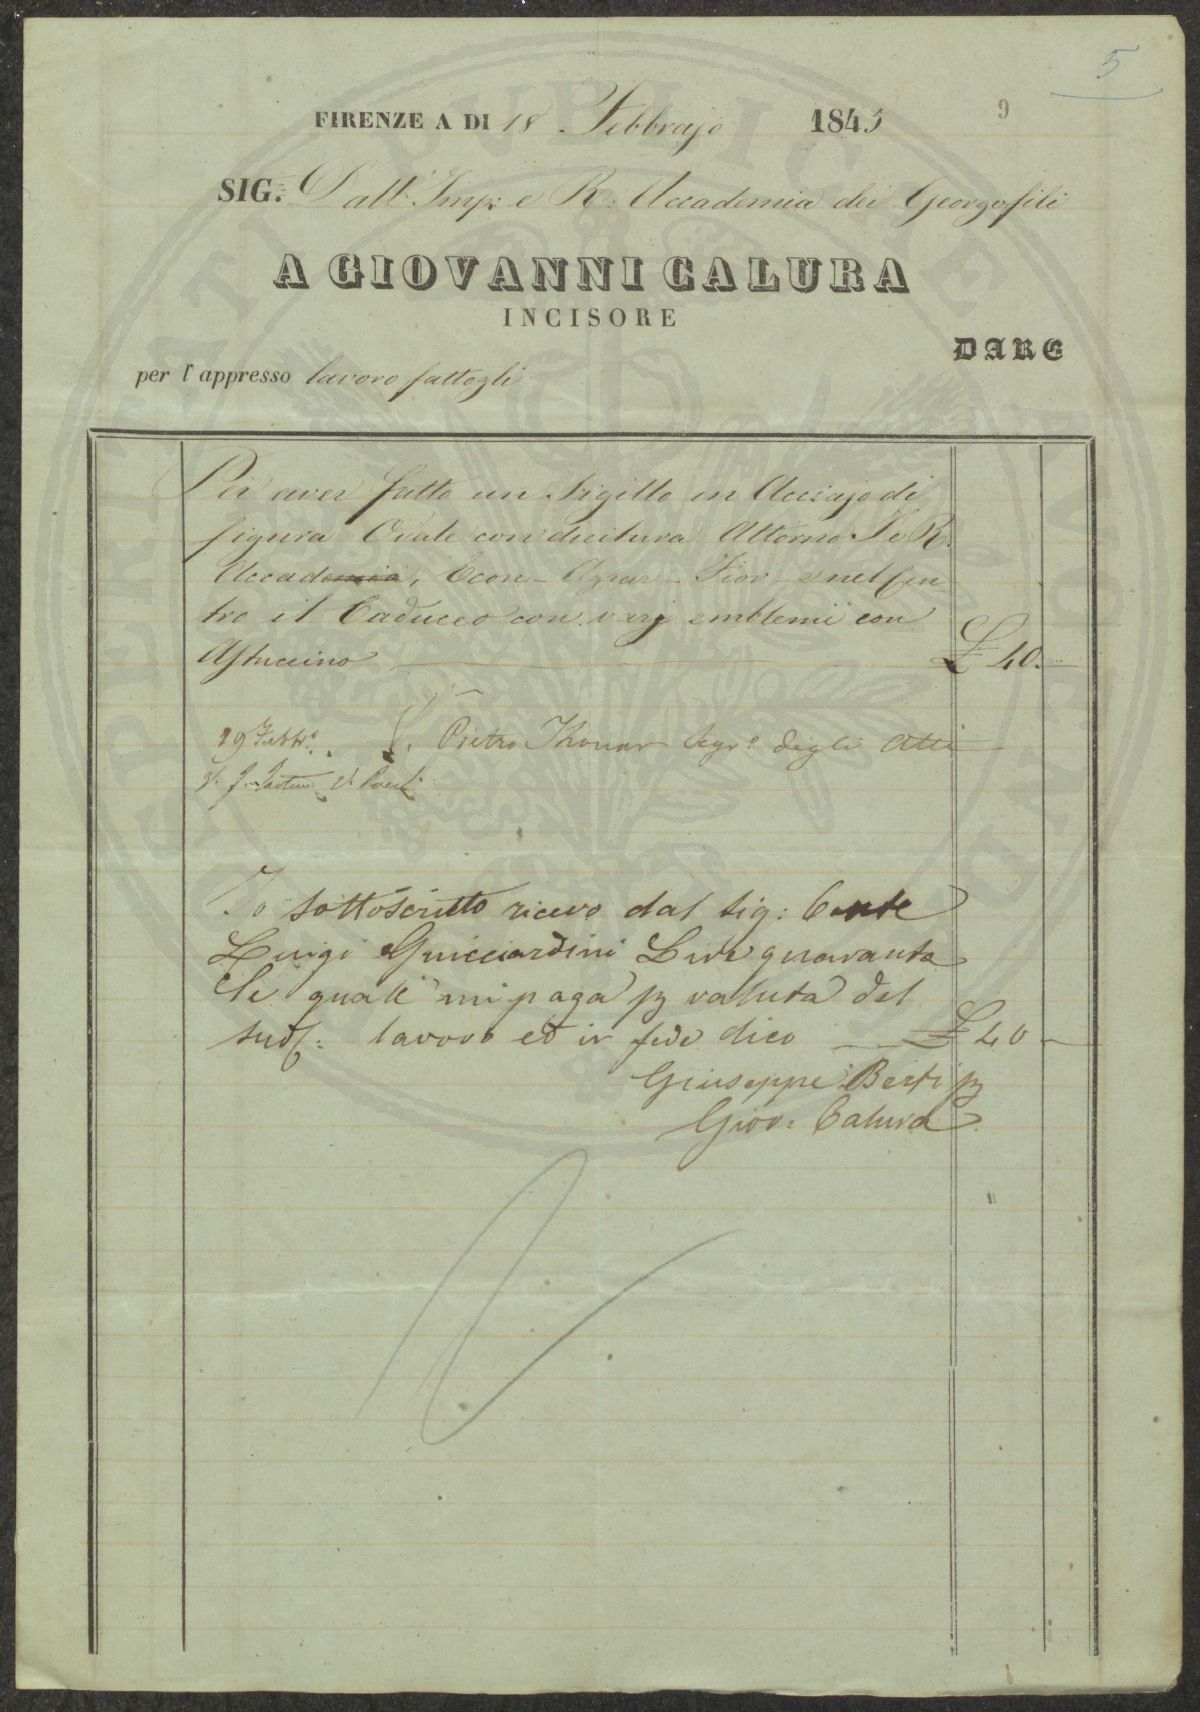 5
9
FIRENZE A DI 18 Febbrajo 1845
SIG. Dall' Imp: e R: Accademia dei Georgofili
A GIOVANNI CALURA
INCISORE
DARE
per l'appresso lavoro fattogli
Per aver fatto un Sigillo in Acciajo di
figura Ovale con dicitura Attorno I e R.
Accademia, Econ- Agrar- Fior- e nel Cen
tro il Caduceo con varj emblemi con
Astuccino £ 40.
19 Febb.o Pietro Segr.o degli Atti
Io sottoscritto ricevo dal Sig: Conte
Luigi Guicciardini Lire quaranta
le quali mi paga p valuta del
sud: lavoro ed in fede dico £ 40
Giuseppe Berti p
Giov: Calura